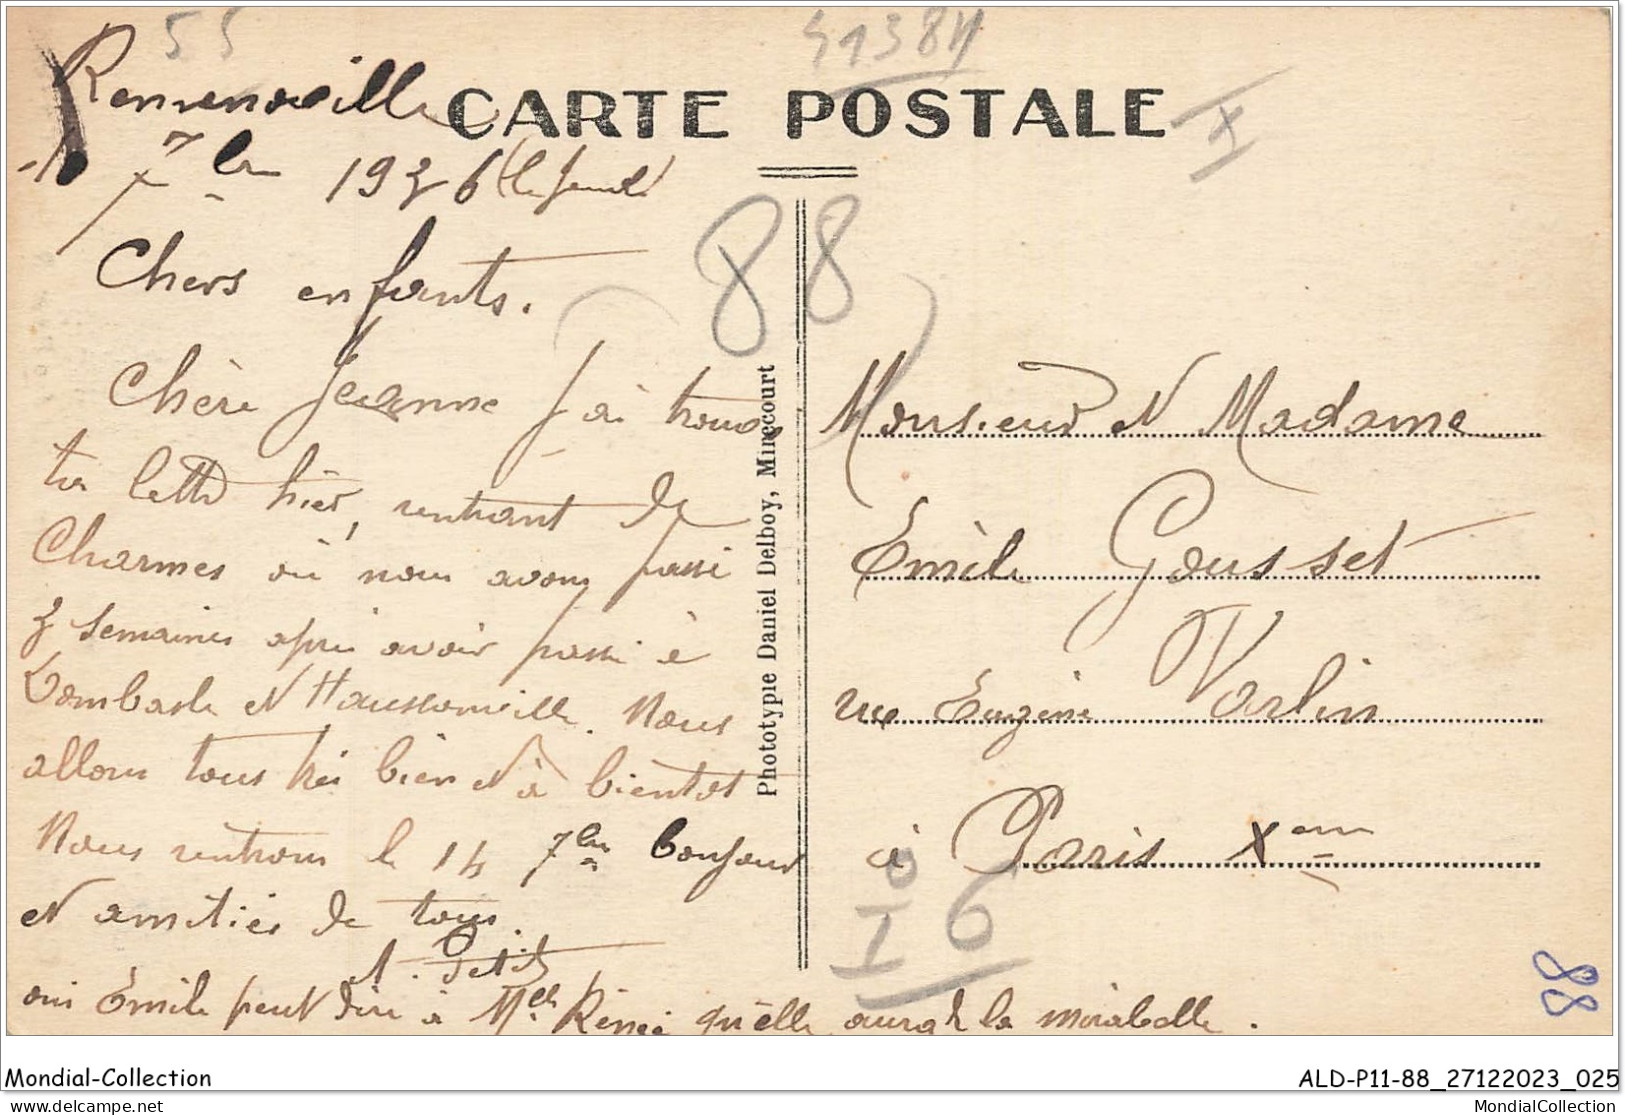 55
41384
X
Remenoville
CARTE POSTALE
10 7bre 1936 (le jeudi)
88
Chers enfants.
Chère Jeanne J'ai trouvé
ta lettre hier, rentrant de
Charmes où nous avons passé
3 semaines après avoir passé à
Dombasle et Haussonville. Nous
allons tous très bien et à bientot
Nous rentrons le 14 7bre bonjour
et amitiés de tous.
A. Petit
oui Émile peut dire à Melle Rénée qu'elle aura de la mirabelle.
Phototypie Daniel Delboy, Mirecourt
Monsieur et Madame
Émile Gousset
rue Eugène Varlin
à Paris Xem
I 6
88
Mondial-Collection
ALD-P11-88_27122023_025
delcampe.net
MondialCollection